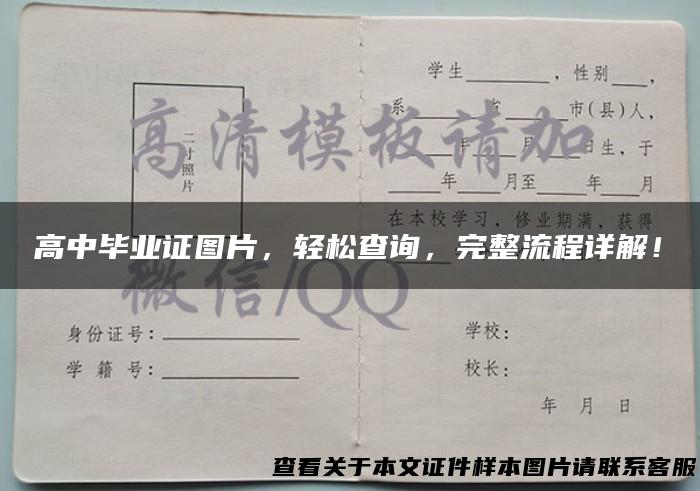 学生________，性别___，
系______省______市(县)人，
____年____月____日生，于
____年____月至____年____月
在本校学习，修业期满，获得
二寸照片
高清模板请加
微信/QQ
高中毕业证图片，轻松查询，完整流程详解！
身份证号：____________
学 籍 号：____________
学校：
校长：
年 月 日
查看关于本文证件样本图片请联系客服